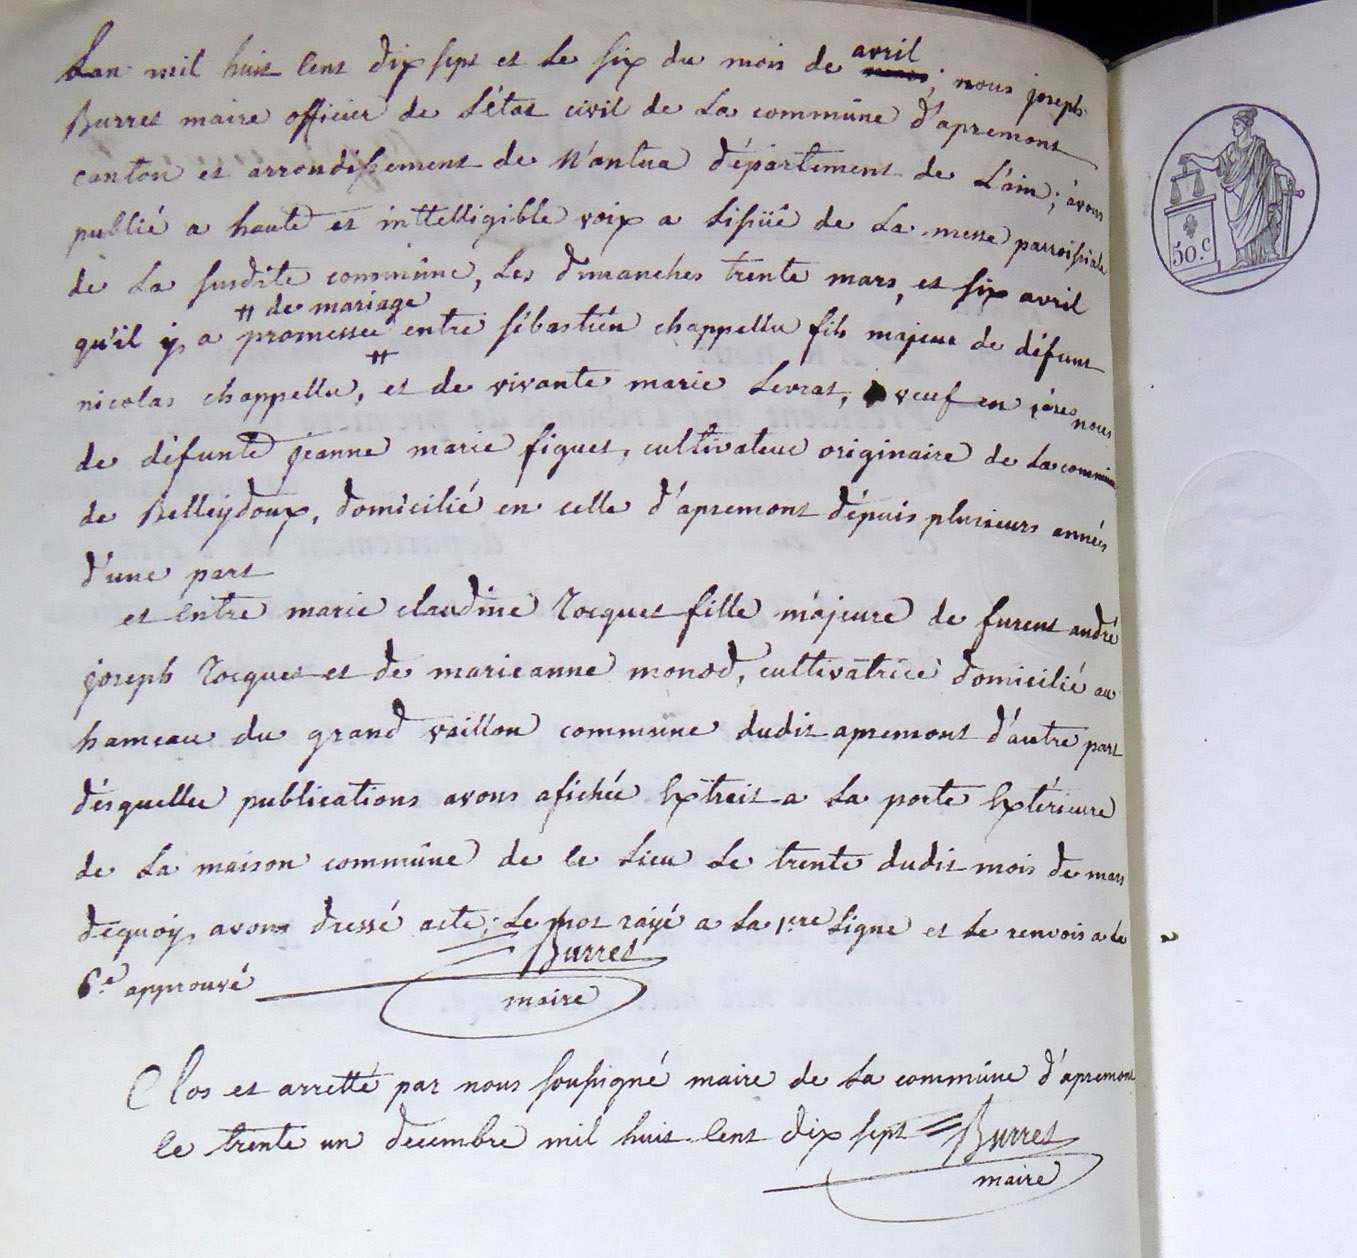 Lan mil huit cent dix sept et le six du mois de avril ; nous joseph
Burret maire officier de L'état civil de La commune d'apremont
canton et arrondissement de Nantua département de L'ain ; avons
publié a haute et inttelligible voix a Lissüe de La messe parroissiale
de La susdite commûne, Les dimanches trente mars, et six avril
# de mariage
qu'il y a promessee entre sébastien chappellu fils majeur de défunt
#
nicolas chappellu, et de vivante marie Levrat, veuf en 
nous
de défunte jeanne marie figuet, cultivateur originaire de La commune
de Belleydoux, domicilié en celle d'apremont dépuis plusieurs annés
d'une part
et entre marie claudine Jocquet fille majeure de furent andré
joseph Jocquet et de marieanne monod, cultivatrice domicilié au
hameau du grand vaillon commune dudit apremont d'autre part
désquellee publications avons afichée Extrait a La porte Extérieure
de La maison commûne de ce Lieu Le trente dudit mois de mars
dequoy, avons dressé acte ; Le mot rayé a La 1ere Ligne et Le renvois a La
6e approuvé
Burret
maire
Clos et arretté par nous soussigné maire de La commûne d'apremont
le trente un decembre mil huit cent dix sept = Burret
maire
50.c